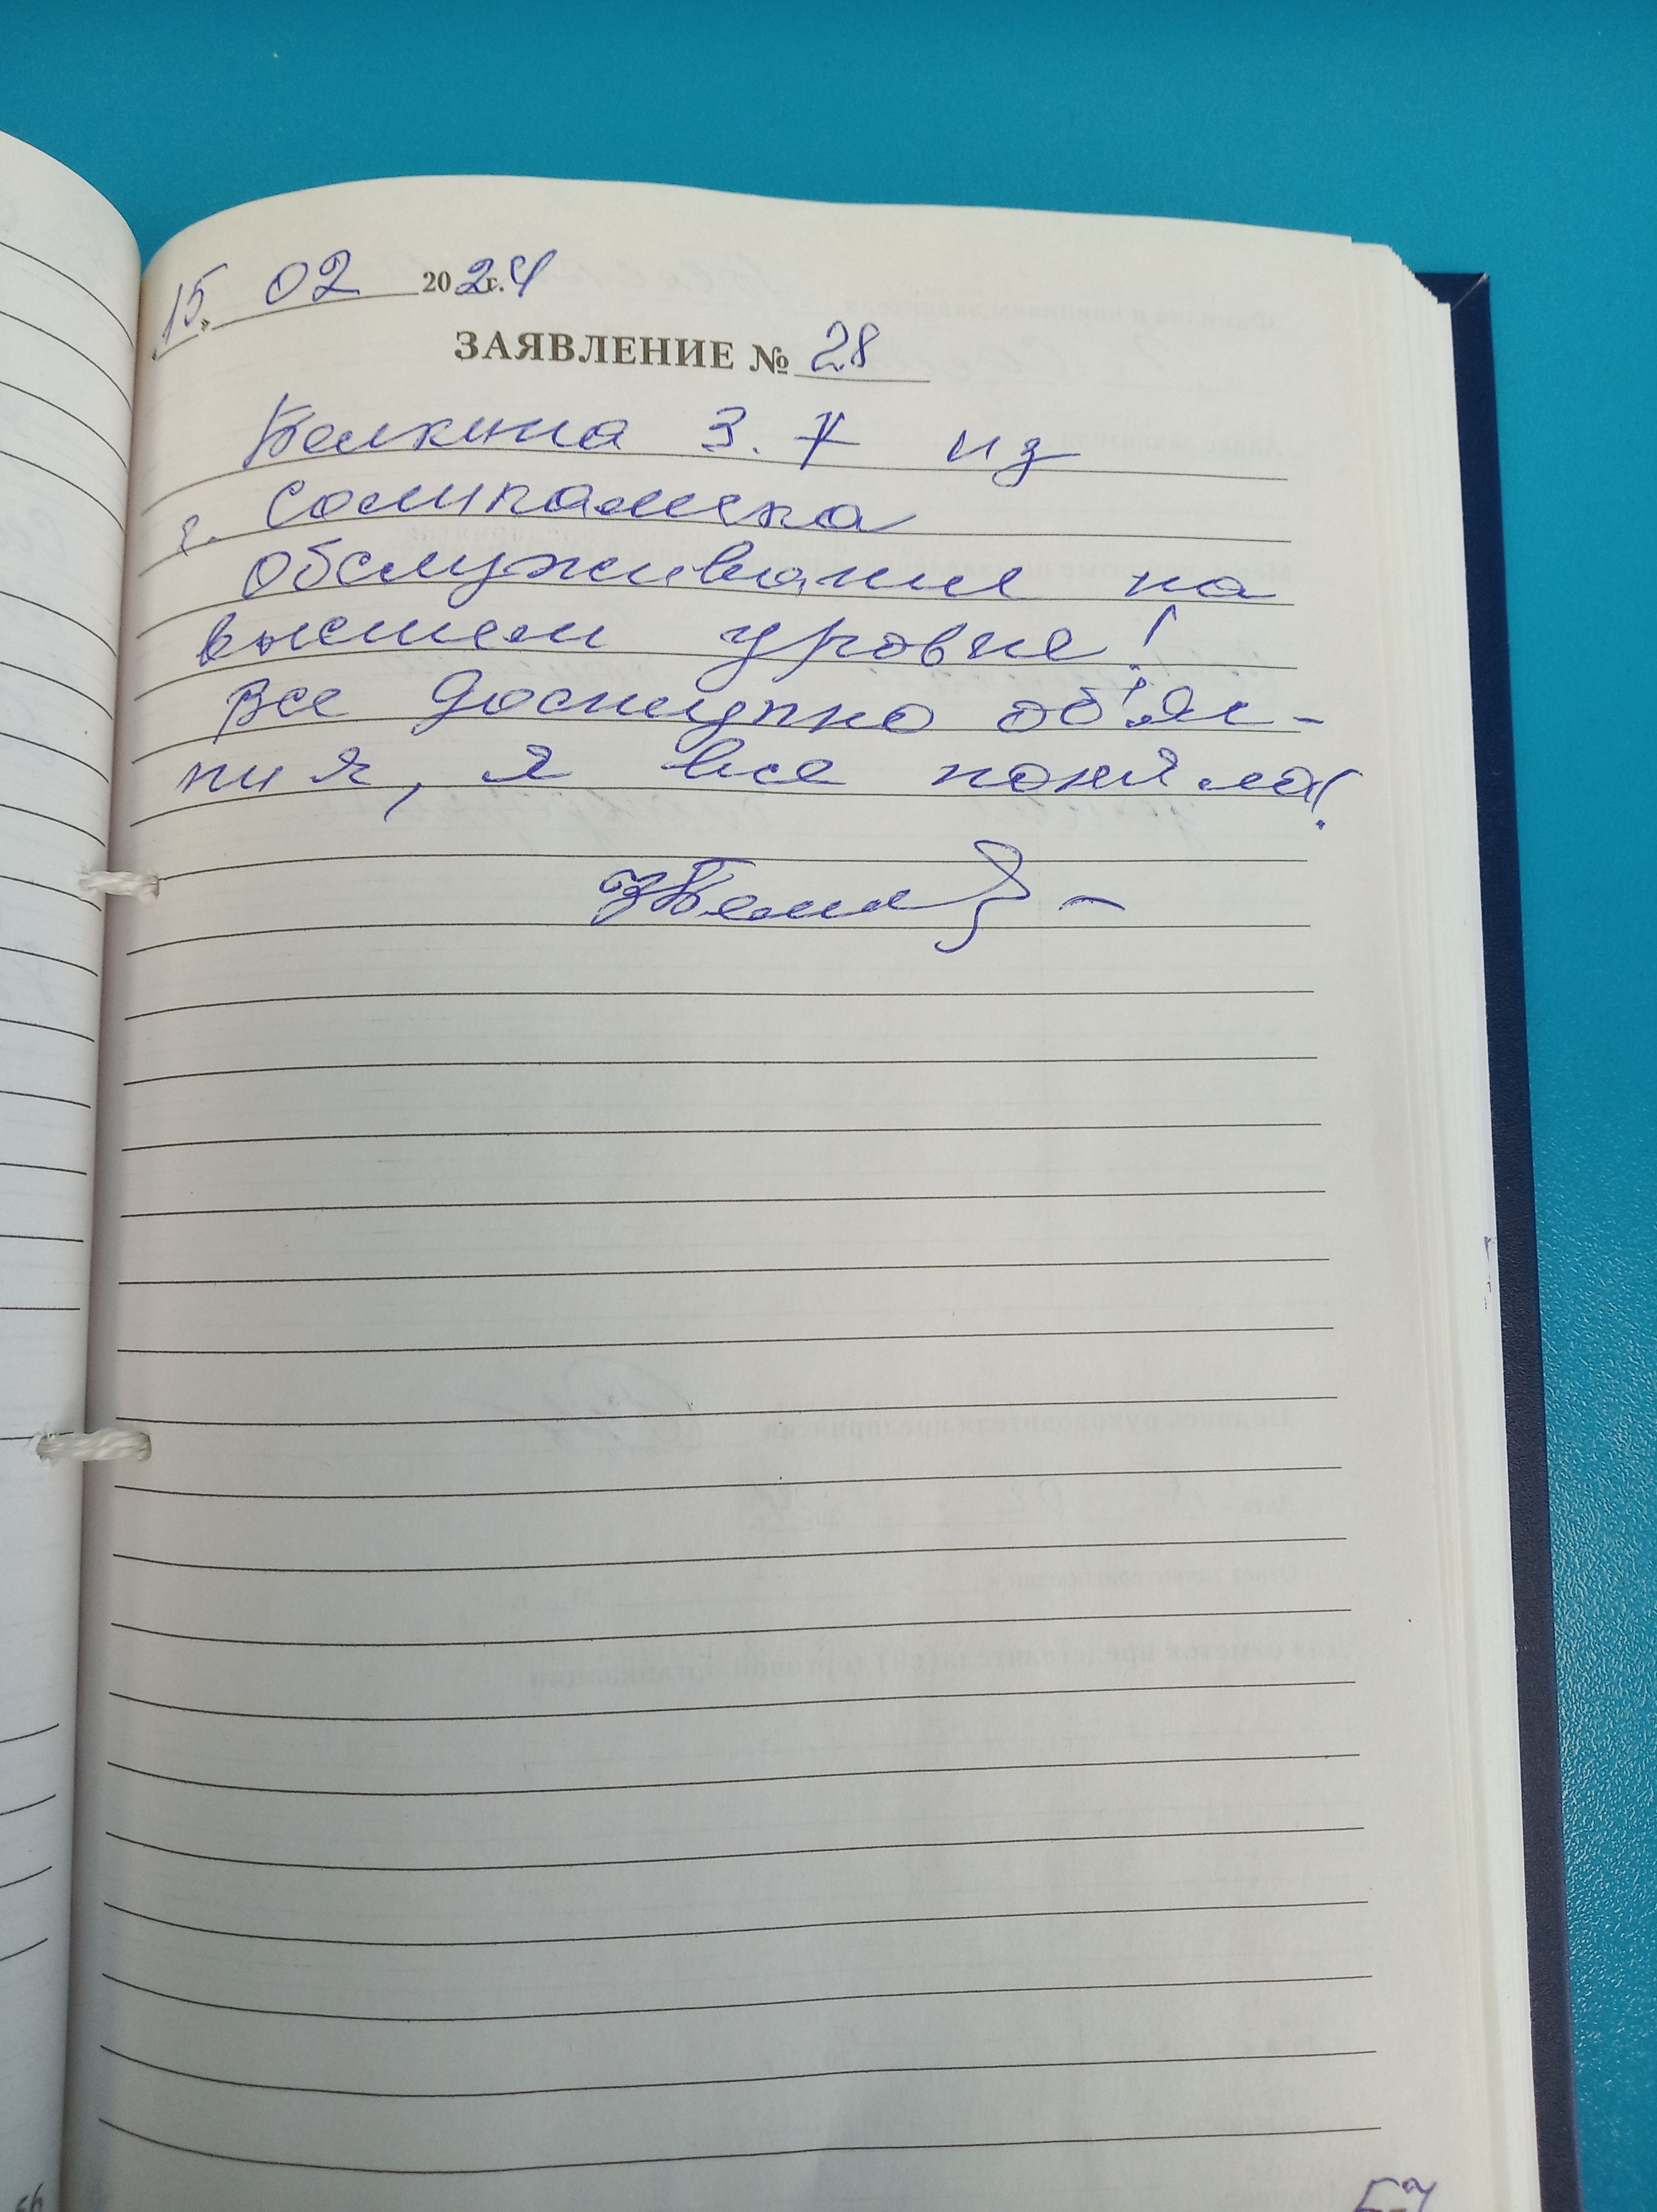 « 15 » 02 2024 г.
ЗАЯВЛЕНИЕ № 28
Белкина З. Ф из
г. Соликамска
обслуживание на
высшем уровне!
Все доступно об'яс-
ния, я все поняла!
57
56